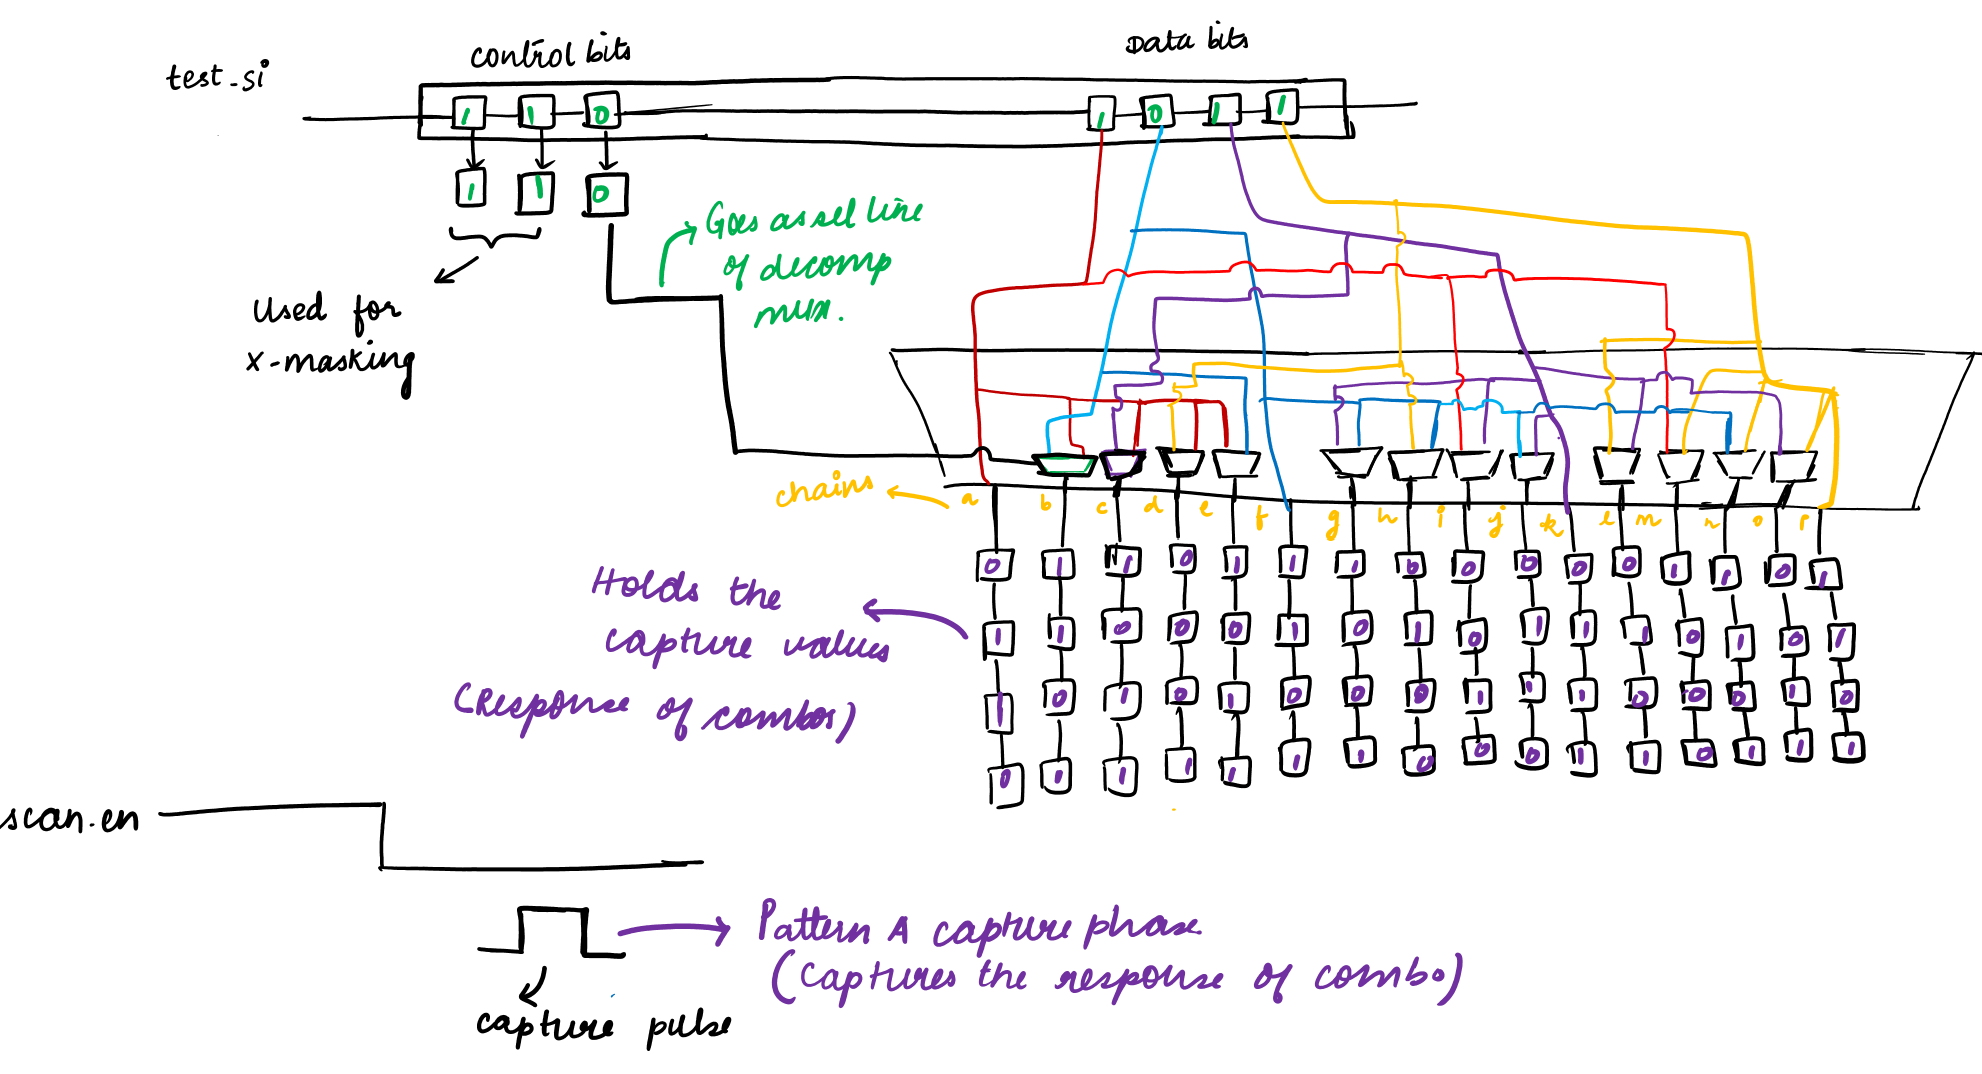 control bits
Data bits
test_si
1 1 0 1 0 1 1
1 1 0
Goes as sel line
of decomp
mux.
Used for
x-masking
chains
a b c d e f g h i j k l m n o p
0 1 1 0 1 1 1 0 0 0 0 0 1 1 0 1
1 1 0 0 0 1 0 1 0 1 1 1 0 1 0 1
1 0 1 0 1 0 0 0 1 1 1 0 0 0 1 0
0 1 1 1 1 1 1 0 0 0 1 1 0 1 1 1
Holds the
capture values
(Response of combos)
scan.en
Pattern A capture phase.
(Captures the response of combo)
capture pulse